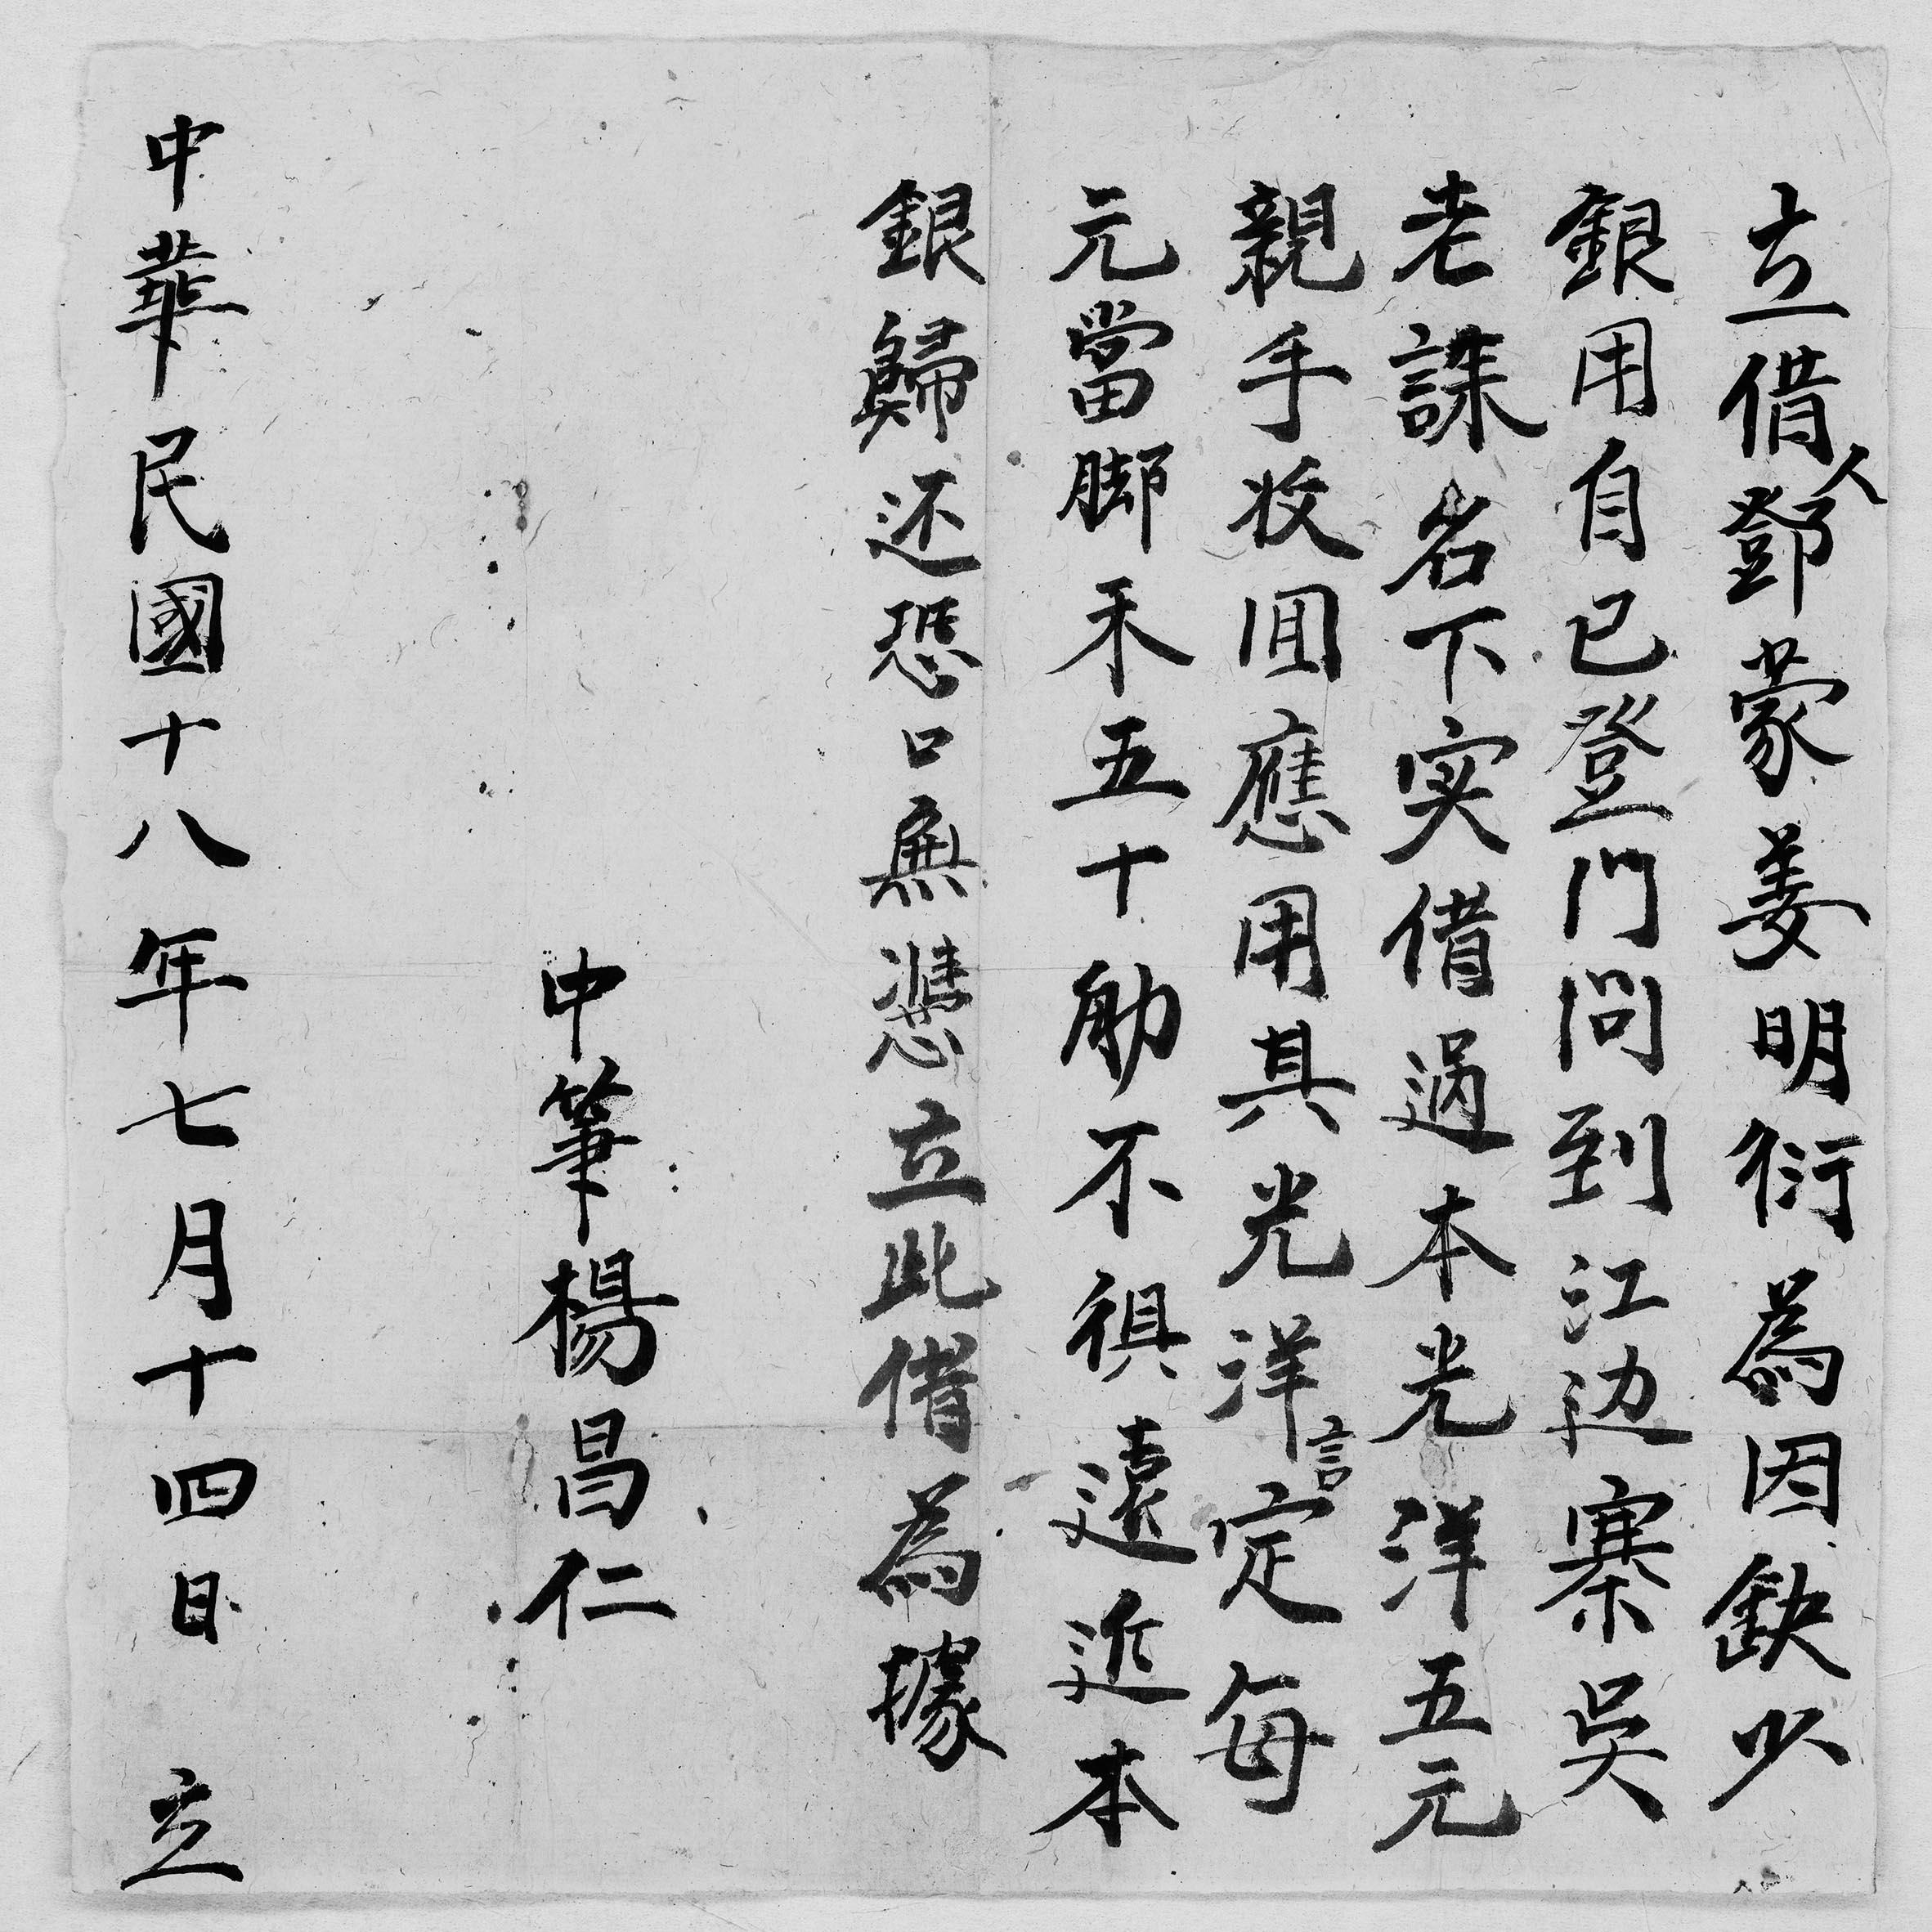 立借人鄧蒙姜明衍為因缺少
銀用自己登門問到江边寨吳
老誅名下实借過本光洋五元
親手收囬應用其光洋言定每
元當脚禾五十觔不俱遠近本
銀歸还恐口無慿立此借為據
中筆楊昌仁
中華民國十八年七月十四日立